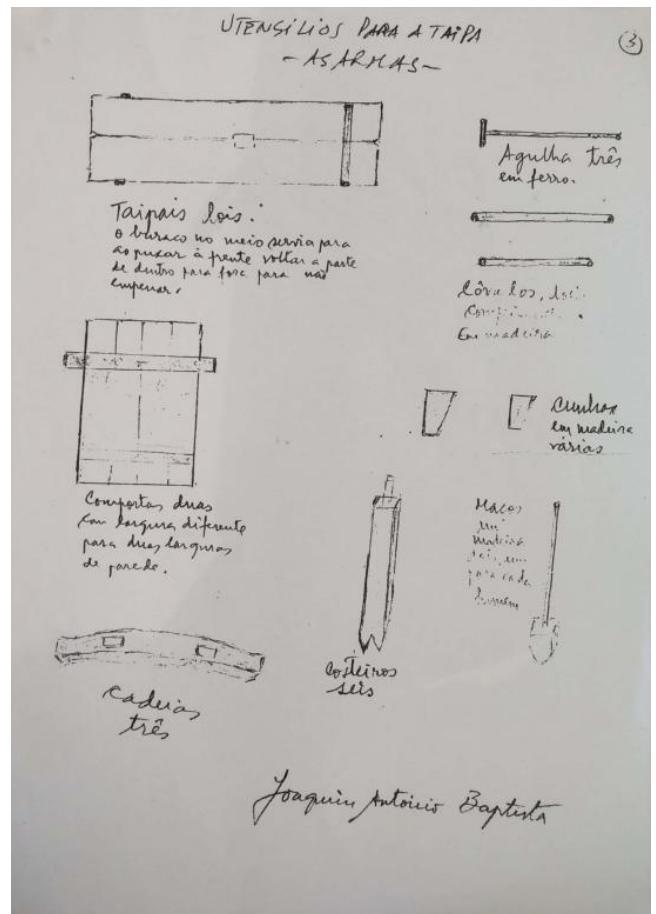 UTENSÍLIOS PARA A TAIPA
- AS ARMAS -
3
Taipais lois.
O buraco no meio servia para
ao puxar à frente voltar a parte
de dentro para fora para não
empenar.
Agulha três
em ferro.
Côvalos, dois
Em madeira
Cunhas
em madeira
várias
Comportas duas
com largura diferente
para duas larguras
de parede.
Costeiros
seis
Maços
em
madeira
dois, um
para cada
homem
Cadeias
três
Joaquim António Baptista